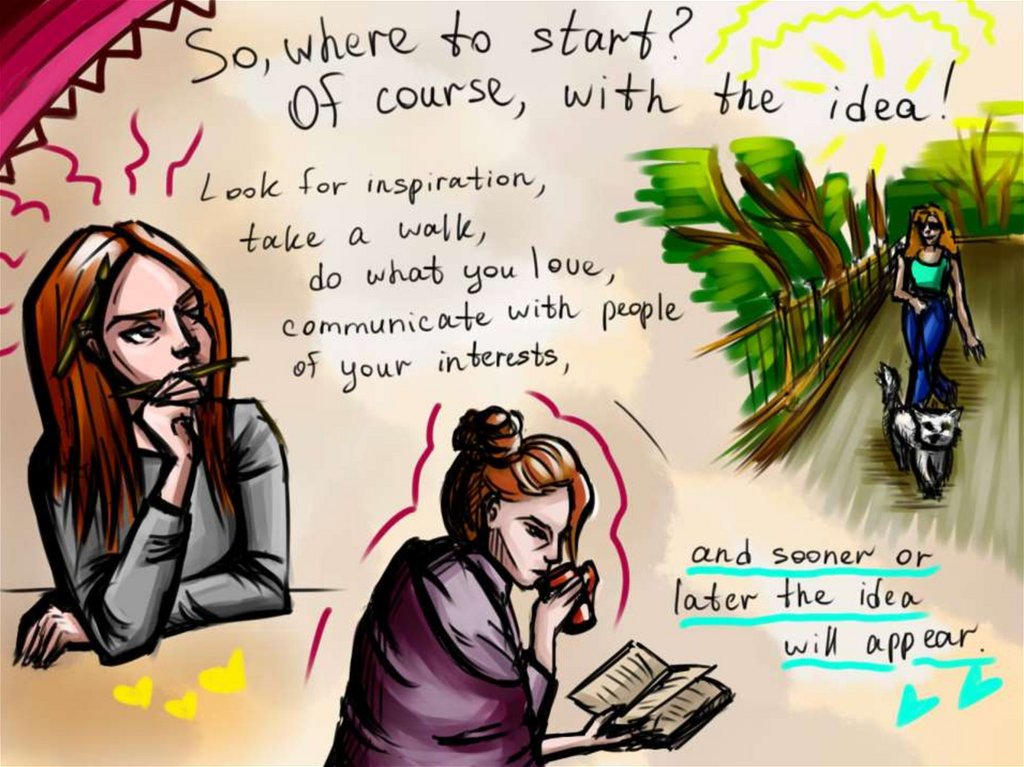 So, where to start?
Of course, with the idea!
Look for inspiration,
take a walk,
do what you love,
communicate with people
of your interests,
and sooner or
later the idea
will appear.